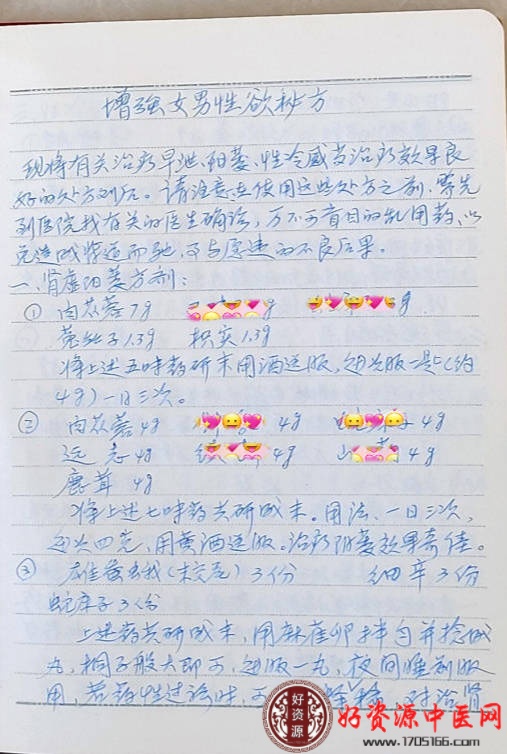 增强女男性欲秘方
现将有关治疗早泄、阳萎、性冷感等治疗效果良
好的处方列后。请注意在使用这些处方之前,需先
到医院找有关的医生确诊,万不可盲目的乱用药,以
免造成背道而驰,与愿违的不良后果。
一、肾虚阳萎方剂:
① 肉苁蓉7g g g
菟丝子1.3g 枳实1.3g
将上述五味药研末用酒送服,每次服一匙(约
4g)一日三次。
② 肉苁蓉4g 4g 4g
远志4g 4g 4g
鹿茸4g
将上述七味药共研成末。用法、一日三次,
每次四克、用黄酒送服。治疗阳萎效果奇佳。
③ 雄蚕蛾(未交尾)3份 细辛3份
蛇床子3份
上述药共研成末,用麻雀卵拌匀并捻成
丸,桐子般大即可,每服一丸,夜间睡前服
用,若药性过
好资源
好资源中医网
www.1705166.com